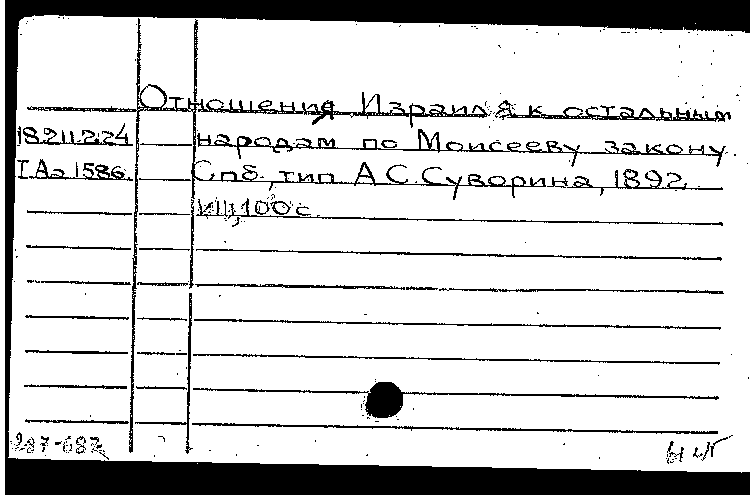 Отношения Израиля к остальным
18.211.2.24 народам по Моисееву закону
I Аа 1586. Спб., тип А С. Суворина, 1892.
100 с.
287-687